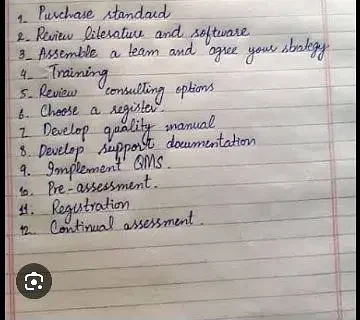 1. Purchase standard
2. Review literature and software
3. Assemble a team and agree your strategy
4. Training
5. Review consulting options
6. Choose a register.
7. Develop quality manual
8. Develop support documentation
9. Implement QMS.
10. Pre-assessment.
11. Registration
12. Continual assessment.